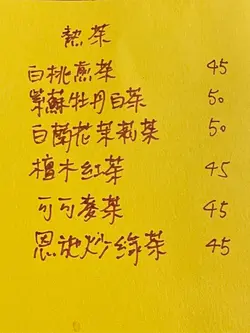 熱茶
白桃煎茶 45
紫蘇牡丹白茶 50
白蘭花茉莉茶 50
檀木紅茶 45
可可麥茶 45
恩施炒綠茶 45